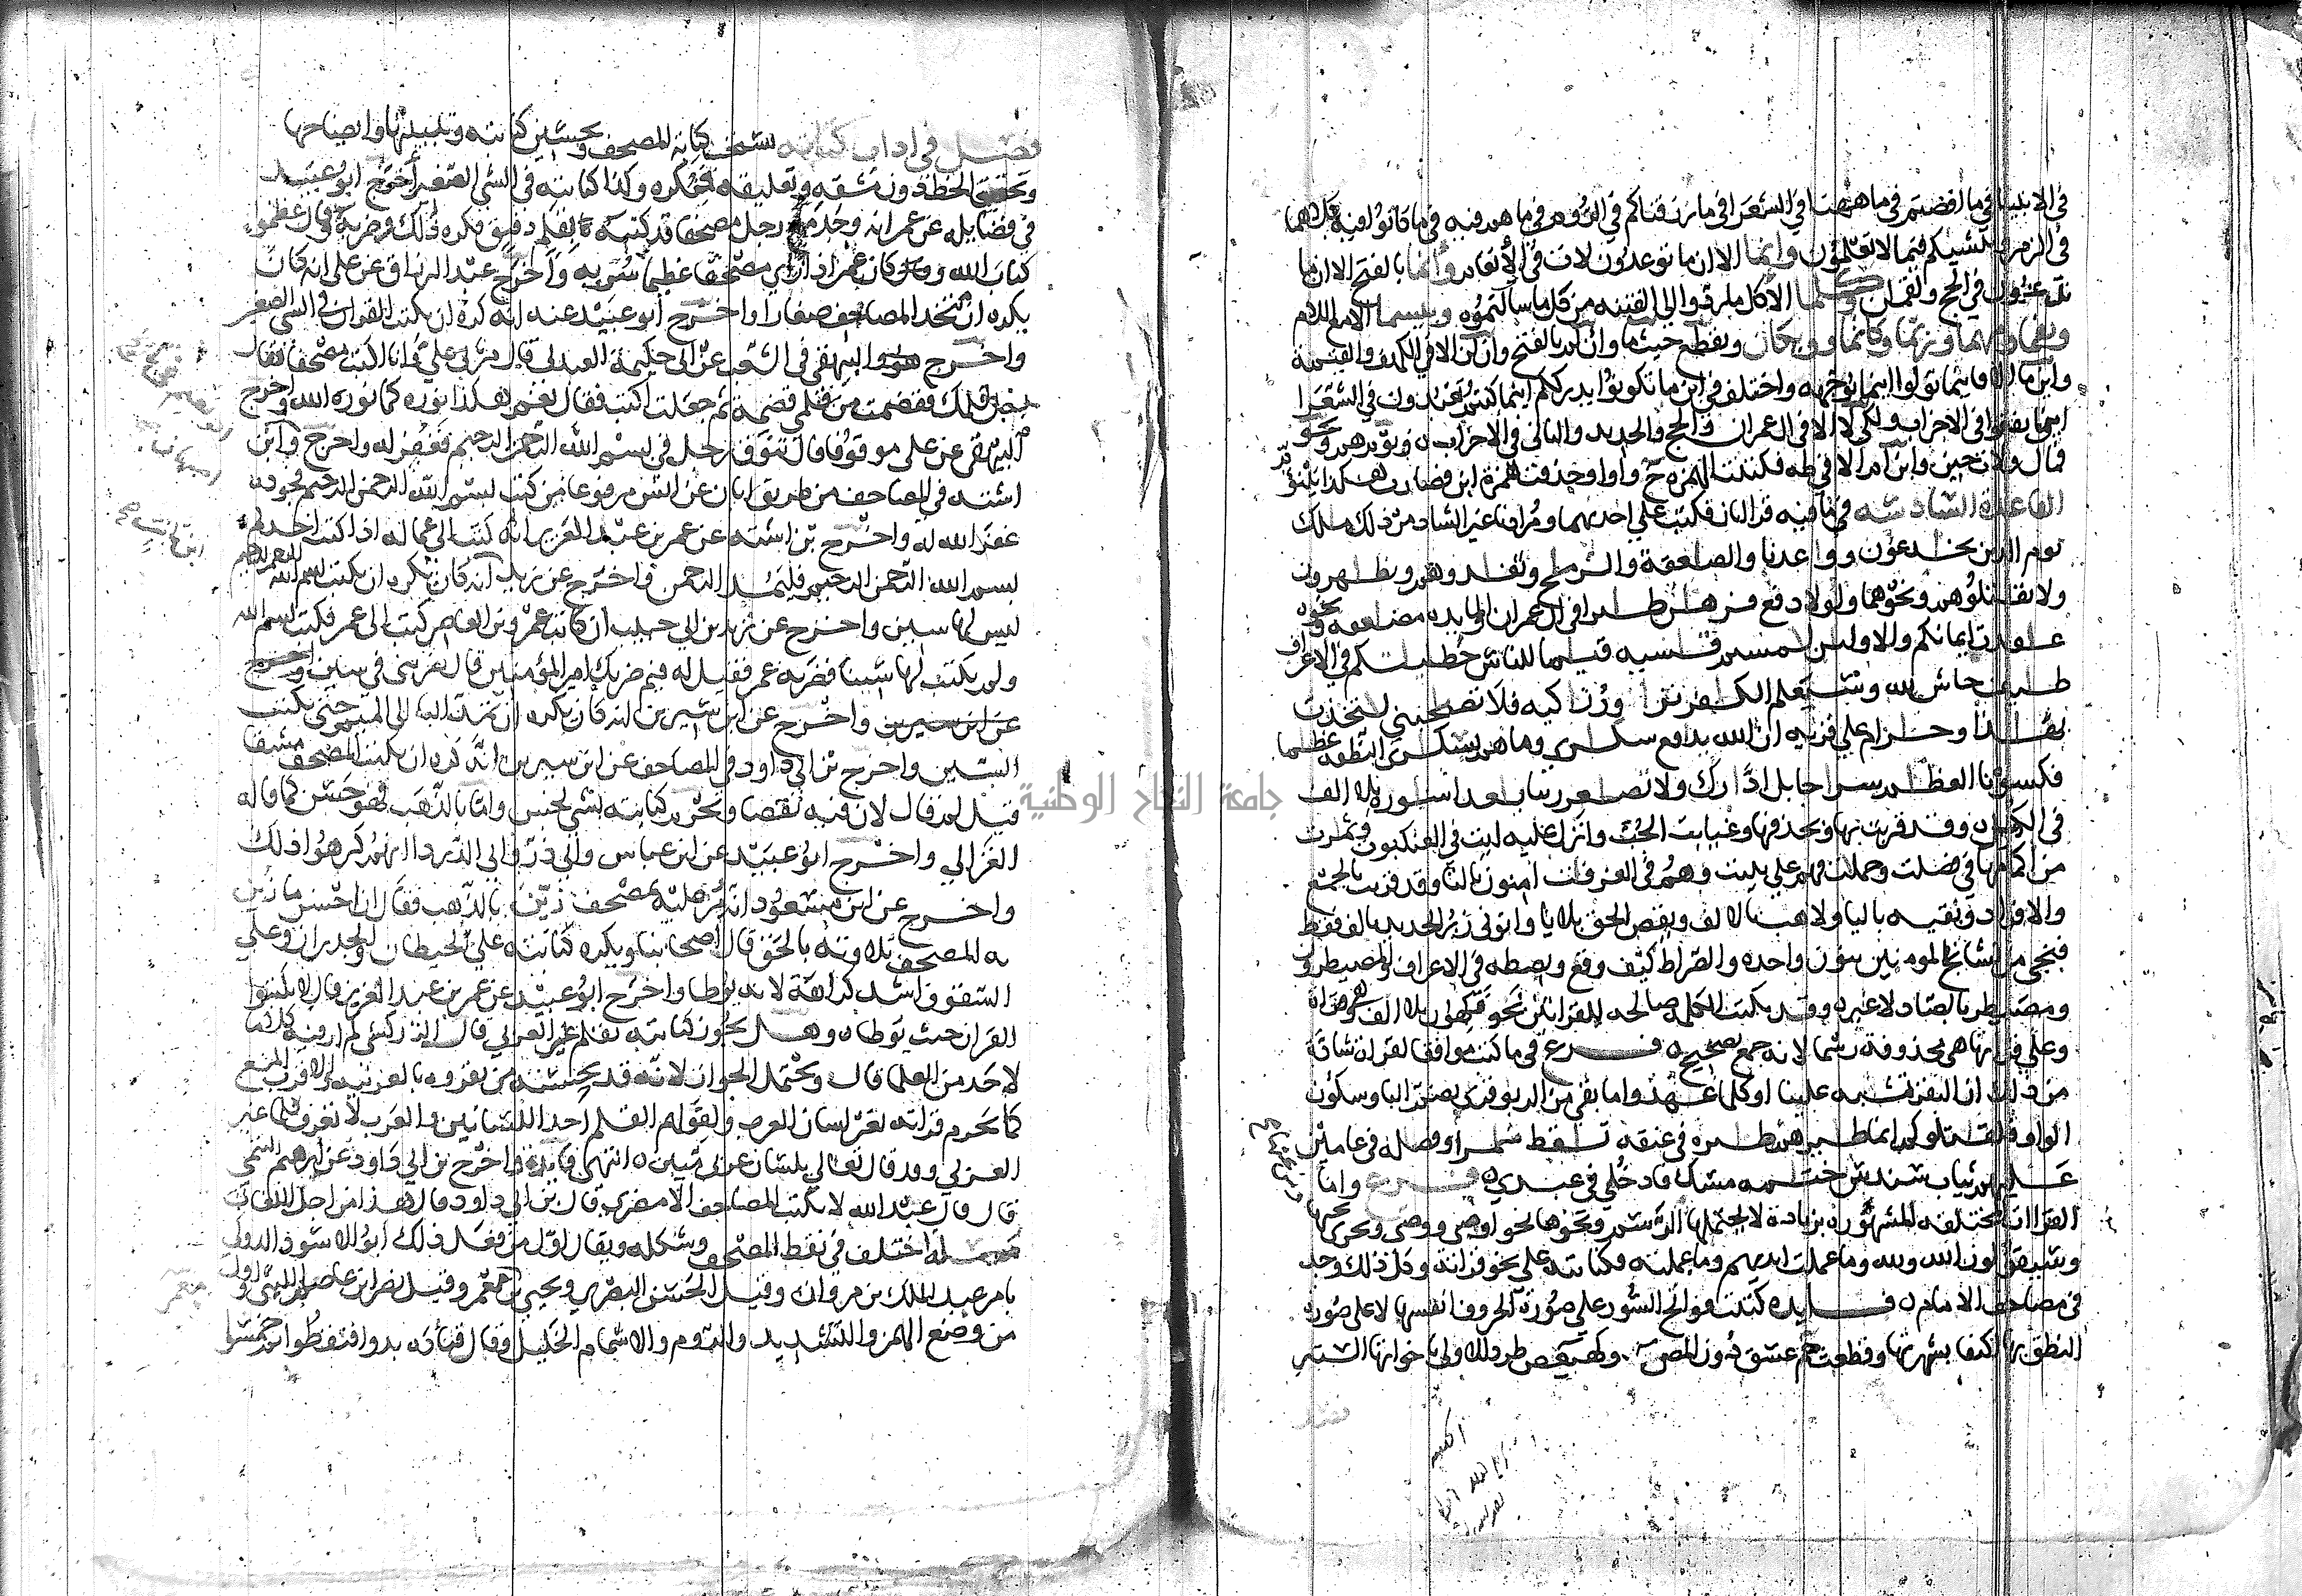 في الانبيا في ما افضتم في ما ههنا في الشعرا في ما رزقناكم في الروم في ما هم فيه في ما كانوا فيه كلاهما
في الزمر وننشيكم فيما لا تعلمون وانما الا ان ما توعدون لات في الانعام وانما بالفتح الا ان ما
يدعون في الحج ولقمان وكلما الا كل ما ردوا الى الفتنة من كل ما سالتموه وبيسما الا مع اللام
ونعما ومهما وربما وكانما وويكان ويقطع حيث ما وان لم بالفتح وان لن الا في الكهف والقيمة
واين ما الا فاينما تولوا اينما يوجهه واختلف في اين ما تكونوا يدرككم اينما كنتم تعبدون في الشعرا
اينما ثقفوا في الاحزاب ولكي لا الا في ال عمران والحج والحديد والثاني في الاحزاب ويوم هم ونحو
فمال ولات حين وابن ام الا في طه فكتبت الهمزة ح واوا وحذفت همزة ابن فصارت هكذا يبنؤم
القاعدة السادسة فيما فيه قراتان فكتبت على احديهما ومرادنا غير الشاذ من ذلك ملك
يوم الدين يخدعون ووعدنا والصاعقة والريح وتفدوهم وتظهرون
ولا تقتلوهم ونحوهما ولولا دفع فرهن طيرا في ال عمران والمايدة مضاعفة ونحوه
عقدت ايمانكم والاولين لمستم قسيه قيما للناس خطيتكم في الاعراف
طيف حاش لله وسيعلم الكفر تزور زاكيه فلا تصحبني لتخذت
مهدا وحرام على قرية ان الله يدفع سكرى وما هم بسكرى النطفة عظما
فكسونا العظم سراجا بل ادارك ولا تصعر ربنا بعد اسورة بلا الف
في الكل وقد قريت بها وبحذفها وغيابت الجب وانزل عليه ايت في العنكبوت وثمرت
من اكمامها في فصلت وجملت فهم على بينت وهم في الغرفات امنون بالتا وقد قريت بالجمع
والافراد وتقيه باليا ولاهب بالالف ويقص الحق بلا يا واتوني زبر الحديد بالف فقط
فنجي من نشا ننج المومنين بنون واحدة والصراط كيف وقع وبصطة في الاعراف والمصيطرون
ومصيطر بالصاد لا غير وقد تكتب الكلمة صالحة للقراتين نحو فكهون بلا الف وهي قراة
وعلى قراتها هي محذوفة رسما لانه جمع تصحيح فرع في ما كتب موافقا لقراة شاذة
من ذلك ان البقر تشبه علينا اوكلما عهدوا ما بقي من الربو قرى بضم البا وسكون
الواو فلقتلوكم انما طيرهم طيره في عنقه تسقط سمرا وفصله في عامين
عليهم ثياب سندس ختمه مسك فادخلي في عبدي فرع واما
القراات المختلفة المشهورة بزيادة لا يحتملها الرسم ونحوها نحو اوصى ووصى وتجري تحتها
وسيقولون الله ولله وما عملت ايديهم وما عملته فكتابته على نحو قراته وكل ذلك وجد
في مصاحف الامام فايدة كتبت فواتح السور على صورة الحروف انفسها لا على صورة
النطق بها اكتفا بشهرتها وقطعت حم عسق دون المص وكهيعص طردا للاولى باخواتها الستة
فصل في اداب كتابته يستحب كتابة المصحف وتحسين كتابته وتبيينها وايضاحها
وتحقيق الخط دون مشقه وتعليقه فيكره وكذا كتابته في الشي الصغير اخرج ابو عبيد
في فضايله عن عمر انه وجد مع رجل مصحفا قد كتبه بقلم دقيق فكره ذلك وضربه وقال عظموا
كتاب الله وكان عمر اذا راى مصحفا عظيما سر به واخرج عبد الرزاق عن علي انه كان
يكره ان تتخذ المصاحف صغارا واخرج ابو عبيد عنه انه كره ان يكتب القران في الشي الصغير
واخرج هو والبيهقي في الشعب عن ابي حكيمة العبدي قال مر بي علي وانا اكتب مصحفا فقال
اجل قلمك فقضمت من قلمي قضمة ثم جعلت اكتب فقال نعم هكذا نوره كما نوره الله واخرج
البيهقي عن علي موقوفا قال تنوق رجل في بسم الله الرحمن الرحيم فغفر له واخرج وابن
اشته في المصاحف من طريق ابان عن انس مرفوعا من كتب بسم الله الرحمن الرحيم مجودة
غفر الله له واخرج بن اشته عن عمر بن عبد العزيز انه كتب الى عماله اذا كتب احدكم
بسم الله الرحمن الرحيم فليمد الرحمن واخرج عن زيد انه كان يكره ان يكتب بسم الله الرحمن الرحيم
ليس لها سين واخرج عن يزيد بن ابي حبيب ان كاتب عمرو بن العاص كتب الى عمر فكتب بسم الله
ولم يكتب لها سينا فضربه عمر فقيل له فيم ضربك امير المؤمنين قال ضربني في سين واخرج
عن ابن سيرين واخرج عن ابن سيرين انه كان يكره ان تمد البا الى الميم حتى يكتب
السين واخرج بن ابي داود في المصاحف عن ابن سيرين انه كره ان يكتب المصحف مشقا
قيل لم قال لان فيه نقصا وتحرم كتابته بشي نجس واما بالذهب فهو حسن كما قاله
الغزالي واخرج ابو عبيد عن ابن عباس وابي ذر وابي الدردا انهم كرهوا ذلك
واخرج عن ابن مسعود انه مر عليه بمصحف زين بالذهب فقال ان احسن ما زين
به المصحف تلاوته بالحق قال اصحابنا ويكره كتابته على الحيطان والجدران وعلى
السقوف اشد كراهة لانه يوطا واخرج ابو عبيد عن عمر بن عبد العزيز قال لا تكتبوا
القران حيث يوطا وهل يجوز كتابته بقلم غير العربي قال الزركشي لم ار فيه كلاما
لاحد من العلما قال ويحتمل الجواز لانه قد يحسنه من يقروه بالعربية والاقرب المنع
كما تحرم قراته بغير لسان العرب ولقولهم القلم احد اللسانين والعرب لا تعرف قلما غير
العربي وقد قال تعالى بلسان عربي مبين انتهى فايدة واخرج بن ابي داود عن ابرهيم التيمي
قال قال عبد الله لا يكتب المصاحف الا مضري قال بن ابي داود قال هذا من اجل اللغات
مسئلة اختلف في نقط المصحف وشكله ويقال اول من فعل ذلك ابو الاسود الدولي
بامر عبد الملك بن مروان وقيل الحسن البصري ويحيى بن يعمر وقيل نصر ابن عاصم الليثي واول
من وضع الهمز والتشديد والروم والاشمام الخليل وقال قتادة بدوا فنقطوا ثم خمسوا
جامعة النجاح الوطنية